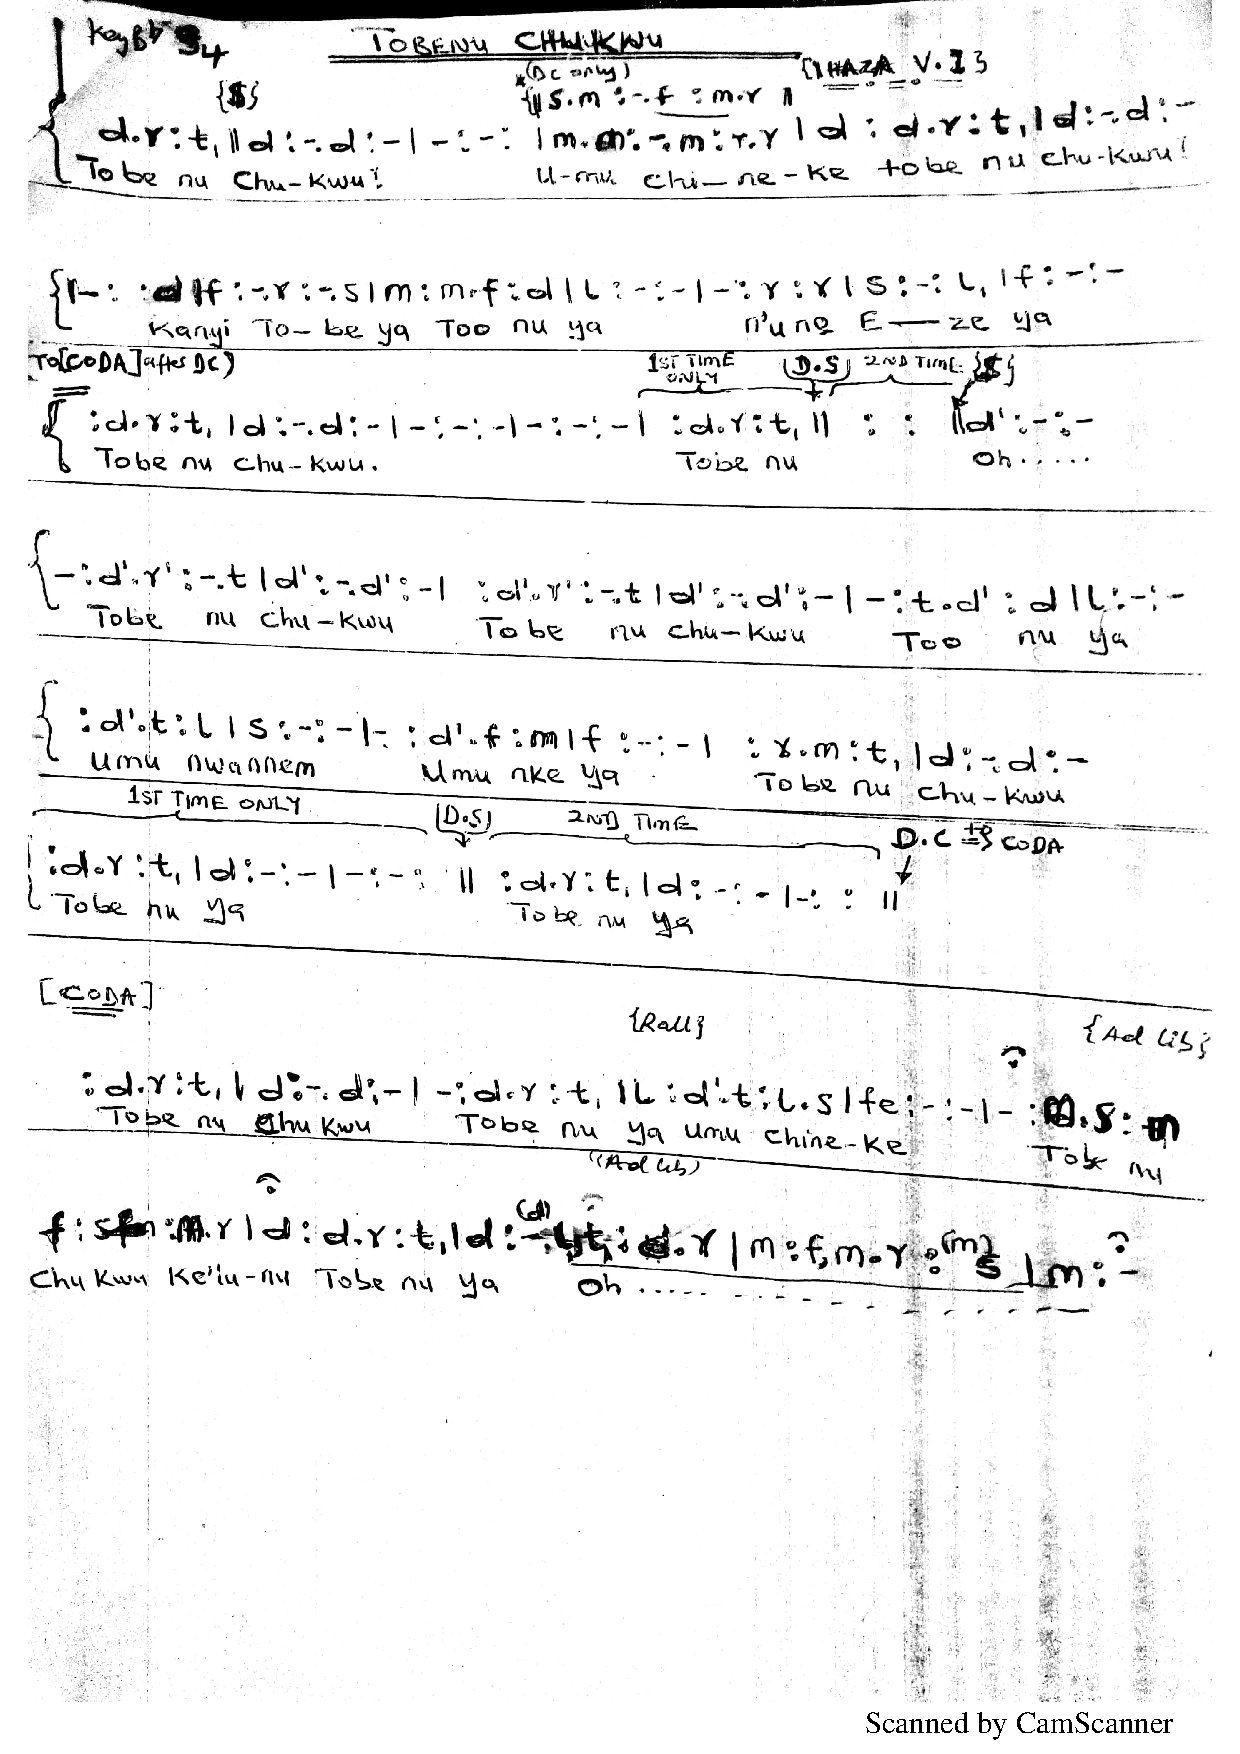 Key Bb 3/4 TOBENU CHUKWU
(DC only) {IHAZA V. I}
{$} {|| s.m :-.f :m.r ||
d.r:t, || d:-.d:-|-:-: |m.m:-.m:r.r|d : d.r:t,|d:-.d:-
Tobe nu Chu-kwu! U-mu Chi-ne-ke tobe nu chu-kwu!
{|-: :d|f:-.r:-.s|m:m.f:d|l:-:-|-:r:r|s:-:l,|f:-:-
Kanyi To-be ya Too nu ya n'uno E-ze ya
To[CODA] after DC) 1ST TIME ONLY (D.S) 2ND TIME {$}
{:d.r:t, |d:-.d:-|-:-:-|-:-:-| :d.r:t, || : : ||d':-:-
Tobe nu chu-kwu. Tobe nu Oh.....
{-:d'.r':-.t|d':-.d':-| :d'.r':-.t|d':-.d':-|-:t.d':d|l:-:-
Tobe nu chu-kwu Tobe nu chu-kwu Too nu ya
{:d'.t:l|s:-:-|- :d'.f:m|f:-:-| :r.m:t,|d:-.d:-
Umu nwannem Umu nke ya Tobe nu chu-kwu
1ST TIME ONLY (D.S) 2ND TIME D.C to CODA
:d.r:t,|d:-:-|-:-: || :d.r:t,|d:-:-|-: : ||
Tobe nu ya Tobe nu ya
[CODA]
{Rall} {Ad Lib}
:d.r:t,|d:-.d:-|-:d.r:t,|l:d'.t:l.s|fe:-:-|-:m.s:m
Tobe nu Chukwu Tobe nu ya umu chine-ke Tobe nu
(Ad lib)
f: :m.r|d:d.r:t,|d:- (d) :d.r|m:f,m.r:(m) s|m:-
Chukwu Ke'lu-nu Tobe nu ya Oh .....
Scanned by CamScanner